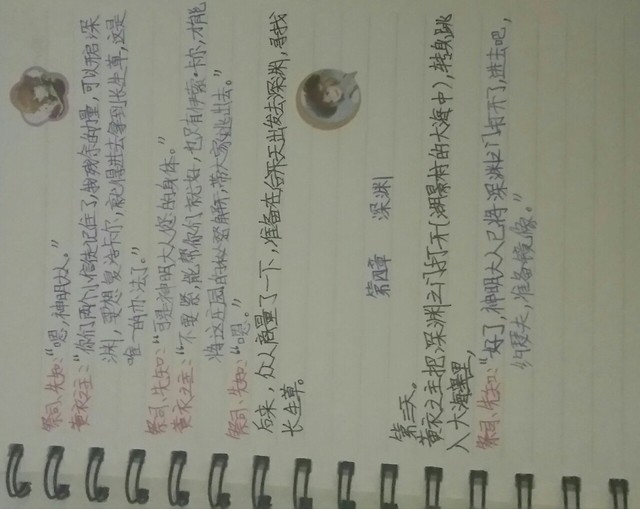 祭司、先知:“嗯,神明大人。”
黄衣之主:“你们两个小信徒记住了,我残余的力量,可以开启深
渊,要想复活卡尔,就得进去拿到长生草,这是
唯一的办法了。”
祭司、先知:“可是神明大人您的身体。”
黄衣之主:“不要紧,能帮你们就好,也只有伊索·卡尔,才能
将这庄园的秘密解析,带大家逃出去。”
祭司、先知:“嗯。”
后来,众人商量了一下,准备在后天出发去深渊,寻找
长生草。
第四章 深渊
第三天。
黄衣之主把深渊之门打开(湖景村的大海中),转身跳
入大海里,
祭司、先知:“好了,神明大人已将深渊之门打开了,进去吧,
准备镜像。”